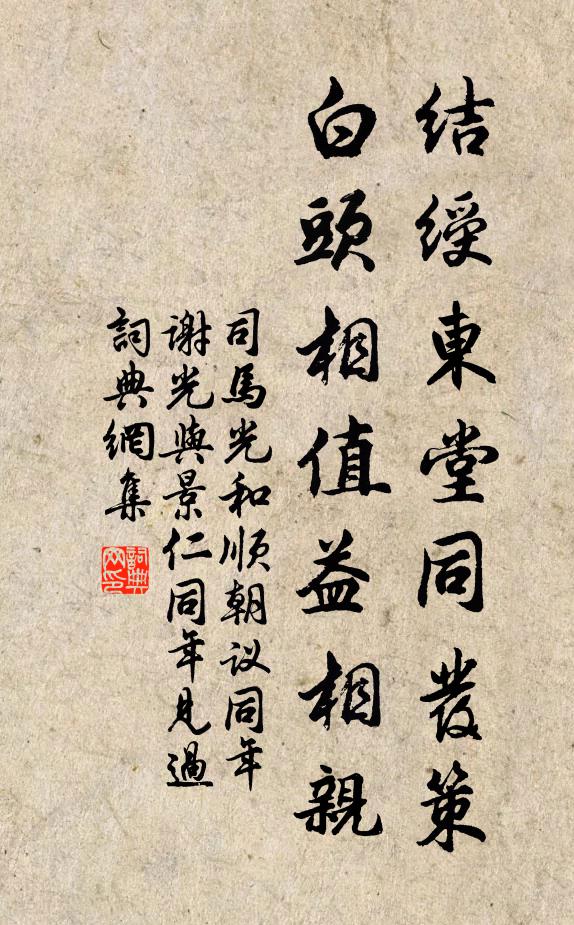 結綬東堂同發策
白頭相值益相親
司馬光和順朝议同年
謝光與景仁同年見過
詞典網集
詞典网印